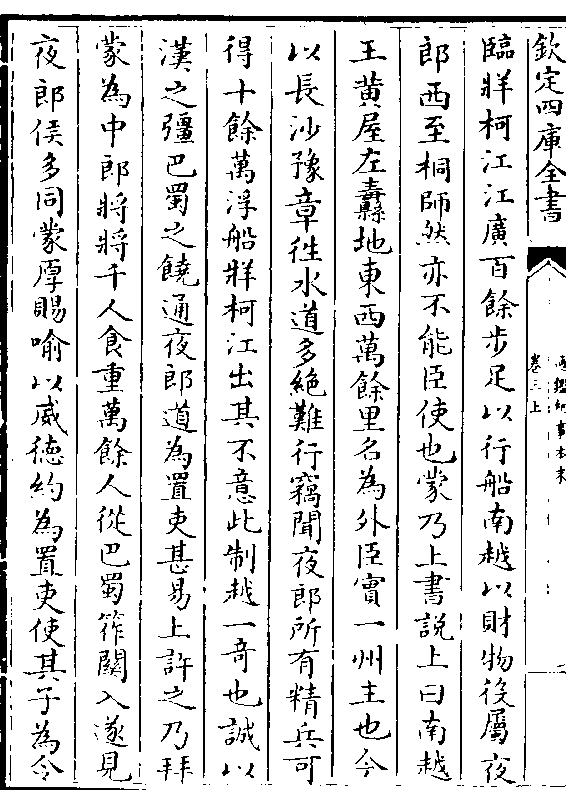 欽定四庫全書
通鑑紀事本末
卷三上
臨牂柯江江廣百餘步足以行船南越以財物役屬夜
郎西至桐師然亦不能臣使也蒙乃上書說上曰南越
王黃屋左纛地東西萬餘里名為外臣實一州主也今
以長沙豫章徃水道多絕難行竊聞夜郎所有精兵可
得十餘萬浮船牂柯江出其不意此制越一奇也誠以
漢之彊巴蜀之饒通夜郎道為置吏甚易上許之乃拜
蒙為中郎將將千人食重萬餘人從巴蜀筰關入遂見
夜郎侯多同蒙厚賜喻以威德約為置吏使其子為令